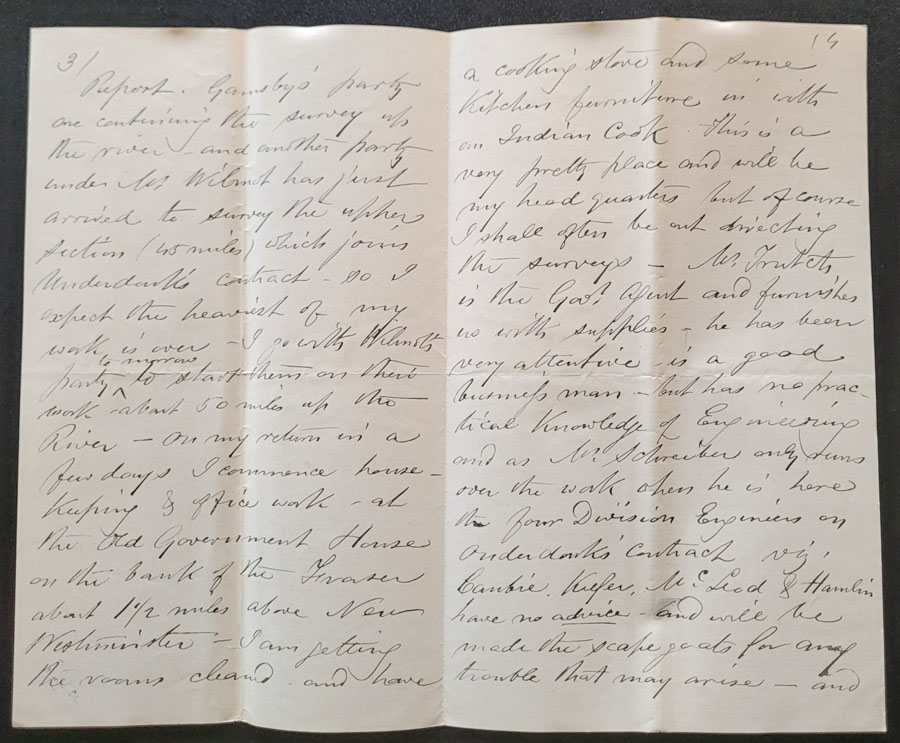 3/
Report. Gamsby's party
are continuing the survey up
the river - and another party
under Mr Wilmot has just
arrived to survey the upper
section (45 miles) which joins
Underdonk's contract - so I
expect the heaviest of my
work is over - I go with Wilmots
to morrow
party ^ to start them on their
work - about 50 miles up the
River - on my return in a
few days I commence house-
keeping & office work - at
the Old Government House
on the bank of the Fraser
about 1 1/2 miles above New
Westminister - I am getting
the rooms cleand and have
/4
a cooking stove and some
Kitchen furniture in with
an Indian Cook. This is a
very pretty place and will be
my head quarters but of course
I shall often be out directing
the surveys - Mr. Trutch
is the Govt. Agent and furnishes
us with supplies - he has been
very attentive - is a good
business man - but has no prac-
tical Knowledge of Engineering
and as Mr. Schreiber only runs
over the work when he is here
the four Division Engineers on
Onderdonk's contract viz,
Cambie, Keefer, McLeod & Hamlin
have no advice - and will be
made the scape goats for any
trouble that may arise - and